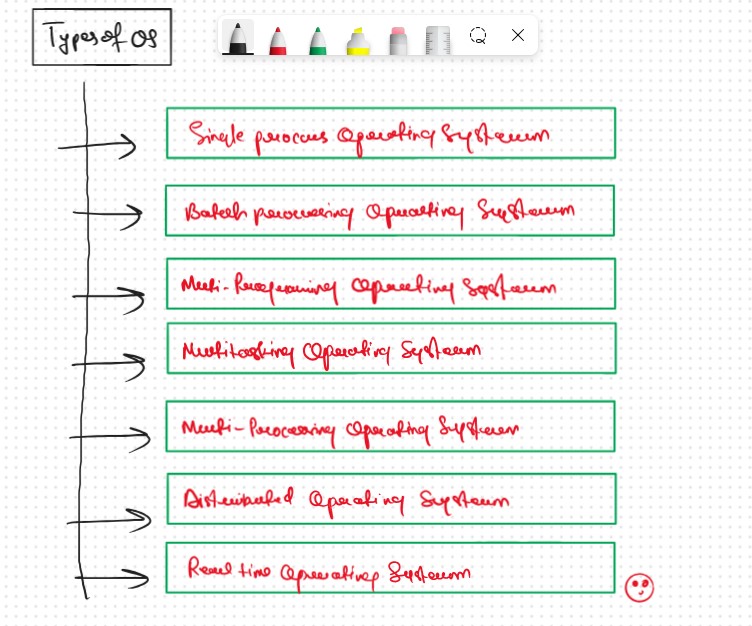 Types of OS
Single process Operating System
Batch processing Operating System
Multi-Programming Operating System
Multitasking Operating System
Multi-Processing Operating System
Distributed Operating System
Real time Operating System